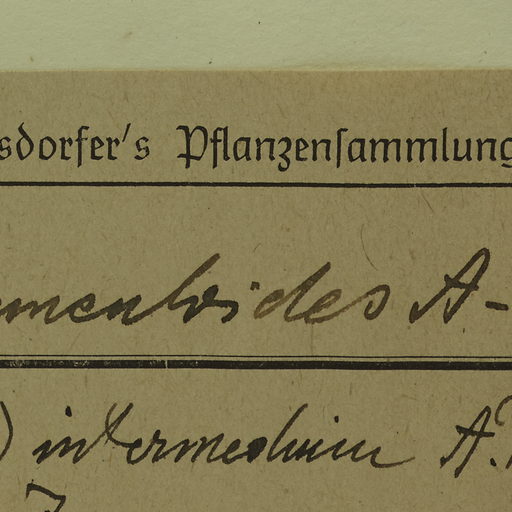 sdorfer's Pflanzensammlung
menloides A-
) intermedium A.